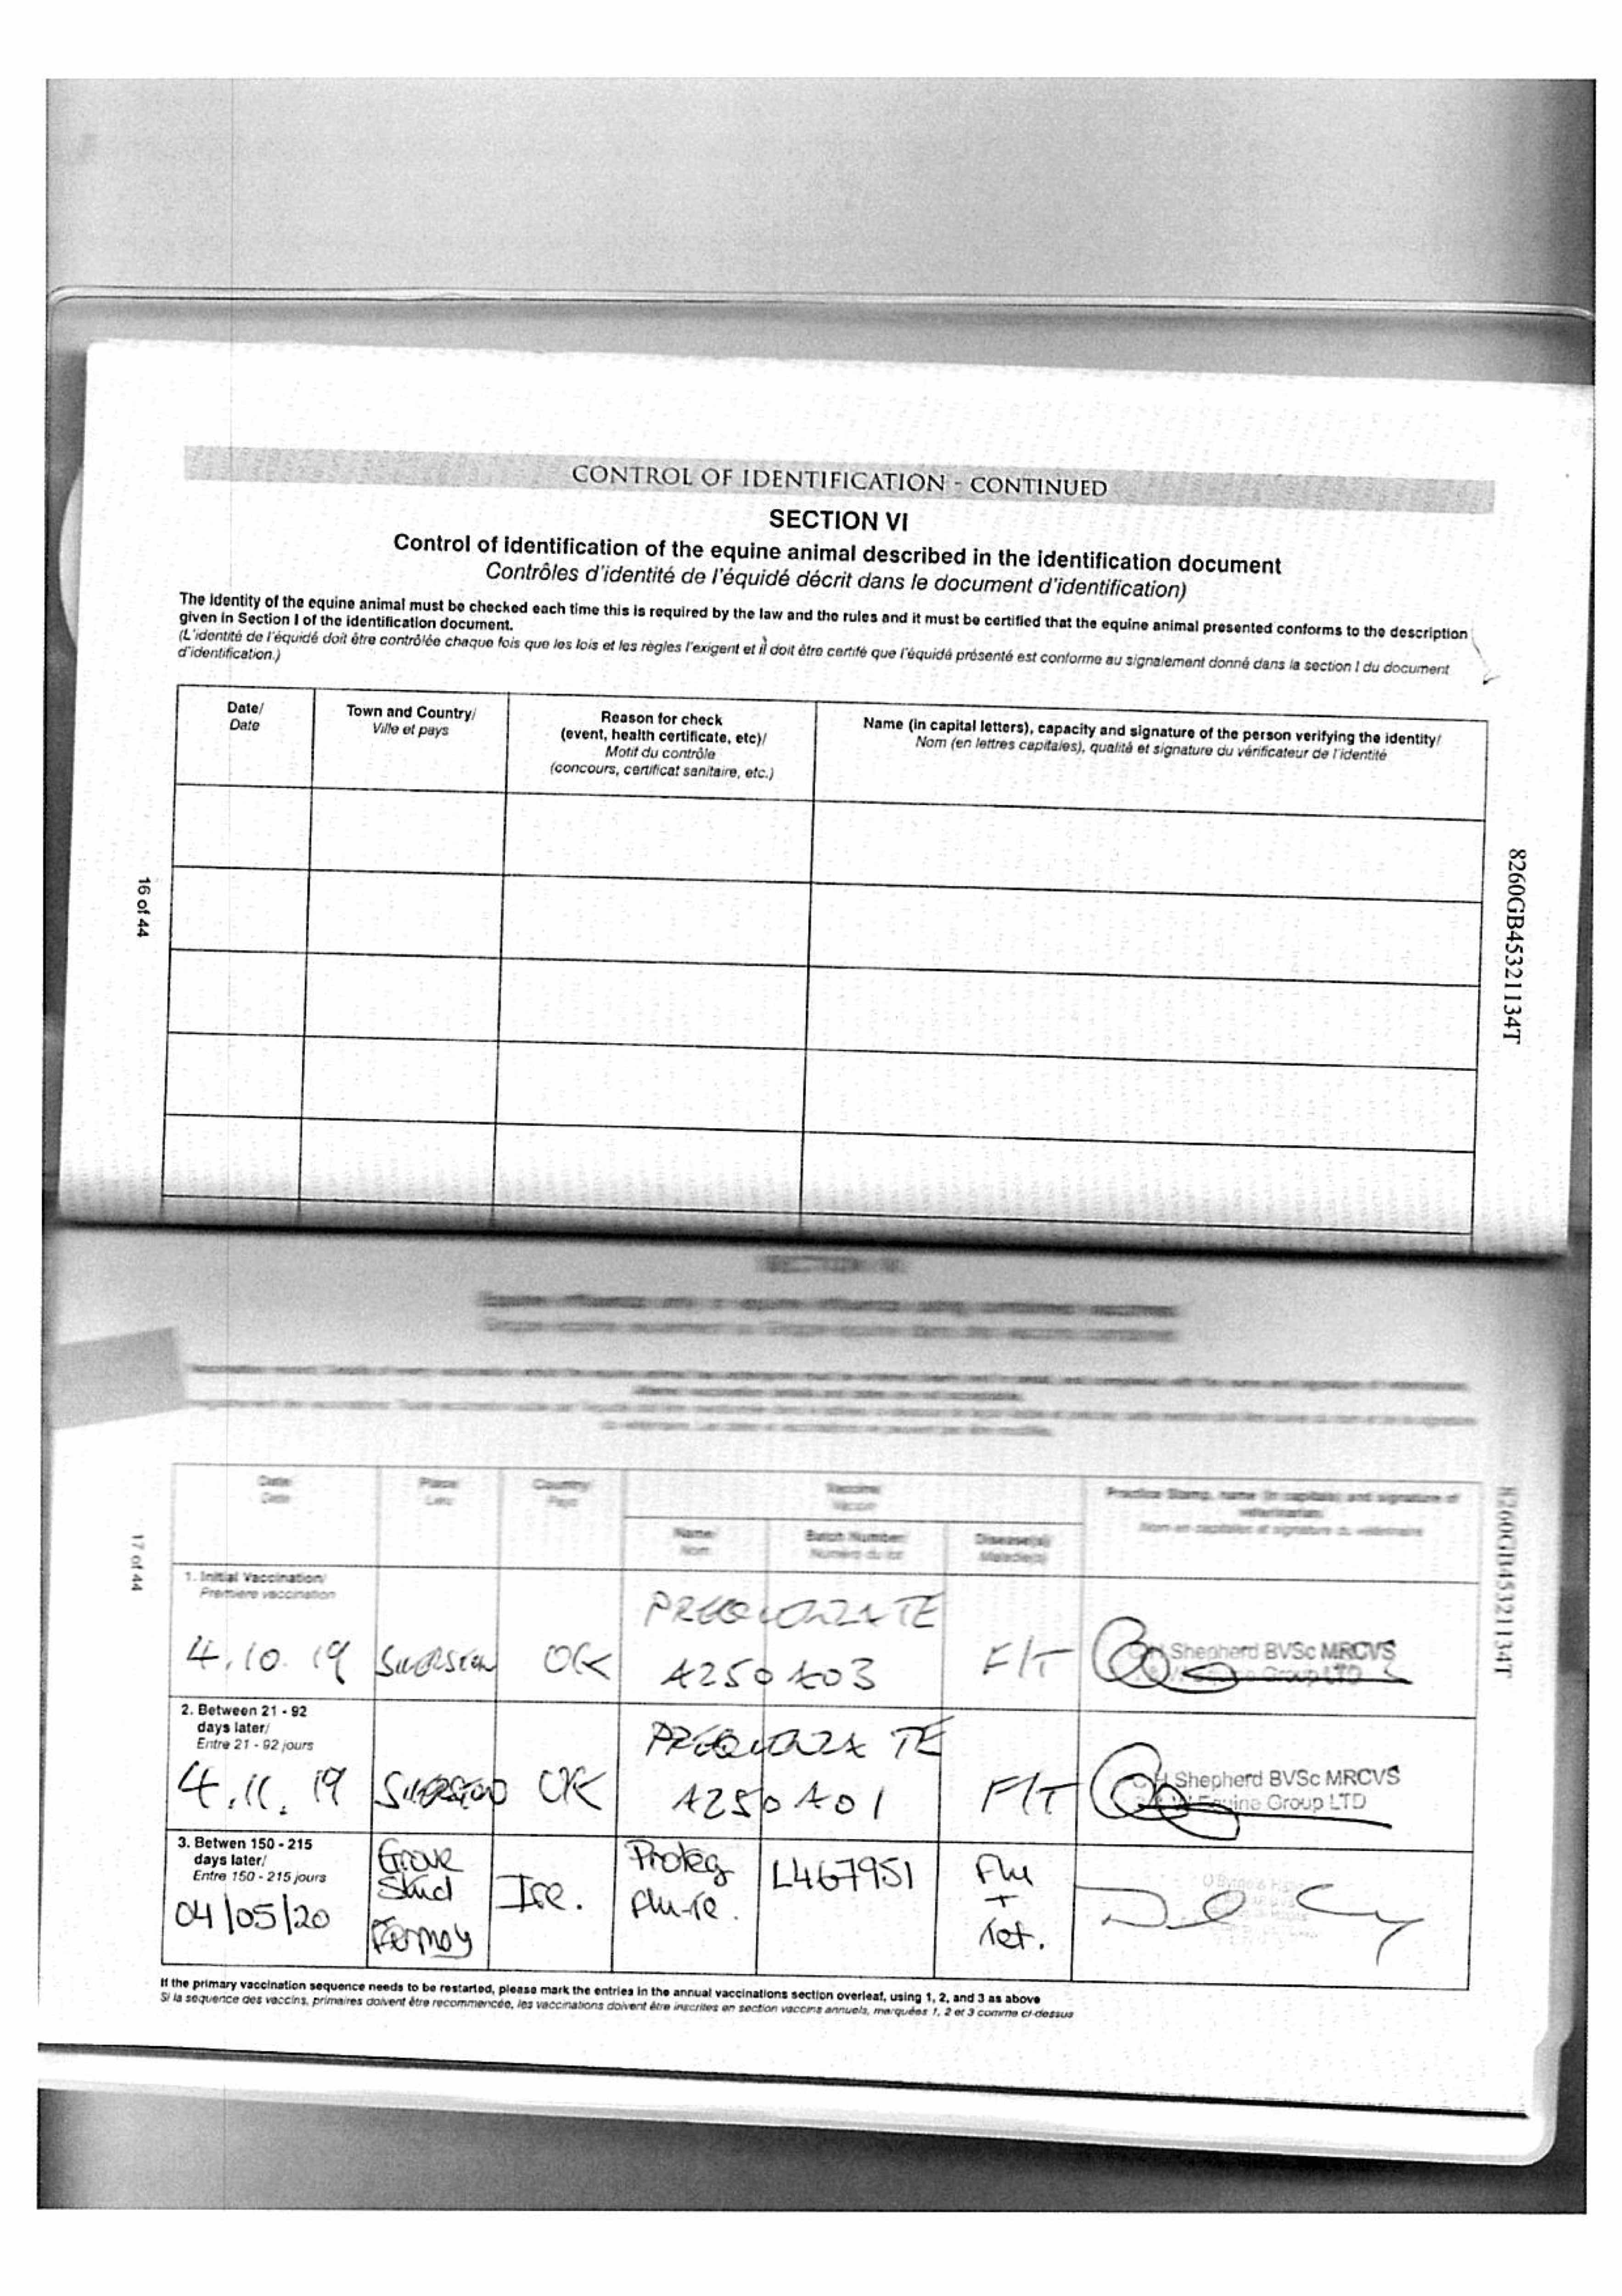 CONTROL OF IDENTIFICATION - CONTINUED
SECTION VI
Control of identification of the equine animal described in the identification document
Contrôles d'identité de l'équidé décrit dans le document d'identification)
The identity of the equine animal must be checked each time this is required by the law and the rules and it must be certified that the equine animal presented conforms to the description
given in Section I of the identification document.
(L'identité de l'équidé doit être contrôlée chaque fois que les lois et les règles l'exigent et il doit être certifé que l'équidé présenté est conforme au signalement donné dans la section I du document
d'identification.)
Date/
Date
Town and Country/
Ville et pays
Reason for check
(event, health certificate, etc)/
Motif du contrôle
(concours, certificat sanitaire, etc.)
Name (in capital letters), capacity and signature of the person verifying the identity/
Nom (en lettres capitales), qualité et signature du vérificateur de l'identité
16 of 44
8260GB45321134T
Date/
Date
Place/
Lieu
Country/
Pays
Vaccine/
Vaccin
Name/
Nom
Batch Number/
Numéro du lot
Disease(s)/
Maladie(s)
Practice Stamp, name (in capitals) and signature of
veterinarian/
Nom en capitales et signature du vétérinaire
17 of 44
8260GB45321134T
1. Initial Vaccination/
Premiere vaccination
4.10.19
UK
PREQUENZA TE
A250A03
F/T
Shepherd BVSc MRCVS
Group LTD
2. Between 21 - 92
days later/
Entre 21 - 92 jours
4.11.19
UK
PREQUENZA TE
A250A01
F/T
Shepherd BVSc MRCVS
Equine Group LTD
3. Betwen 150 - 215
days later/
Entre 150 - 215 jours
04/05/20
Grove
Stud
Fermoy
Ire.
Proteq
Flu-Te.
L467951
Flu
+
Tet.
If the primary vaccination sequence needs to be restarted, please mark the entries in the annual vaccinations section overleaf, using 1, 2, and 3 as above
Si la sequence des vaccins, primaires doivent être recommencée, les vaccinations doivent être inscrites en section vaccins annuels, marquées 1, 2 et 3 comme ci-dessus